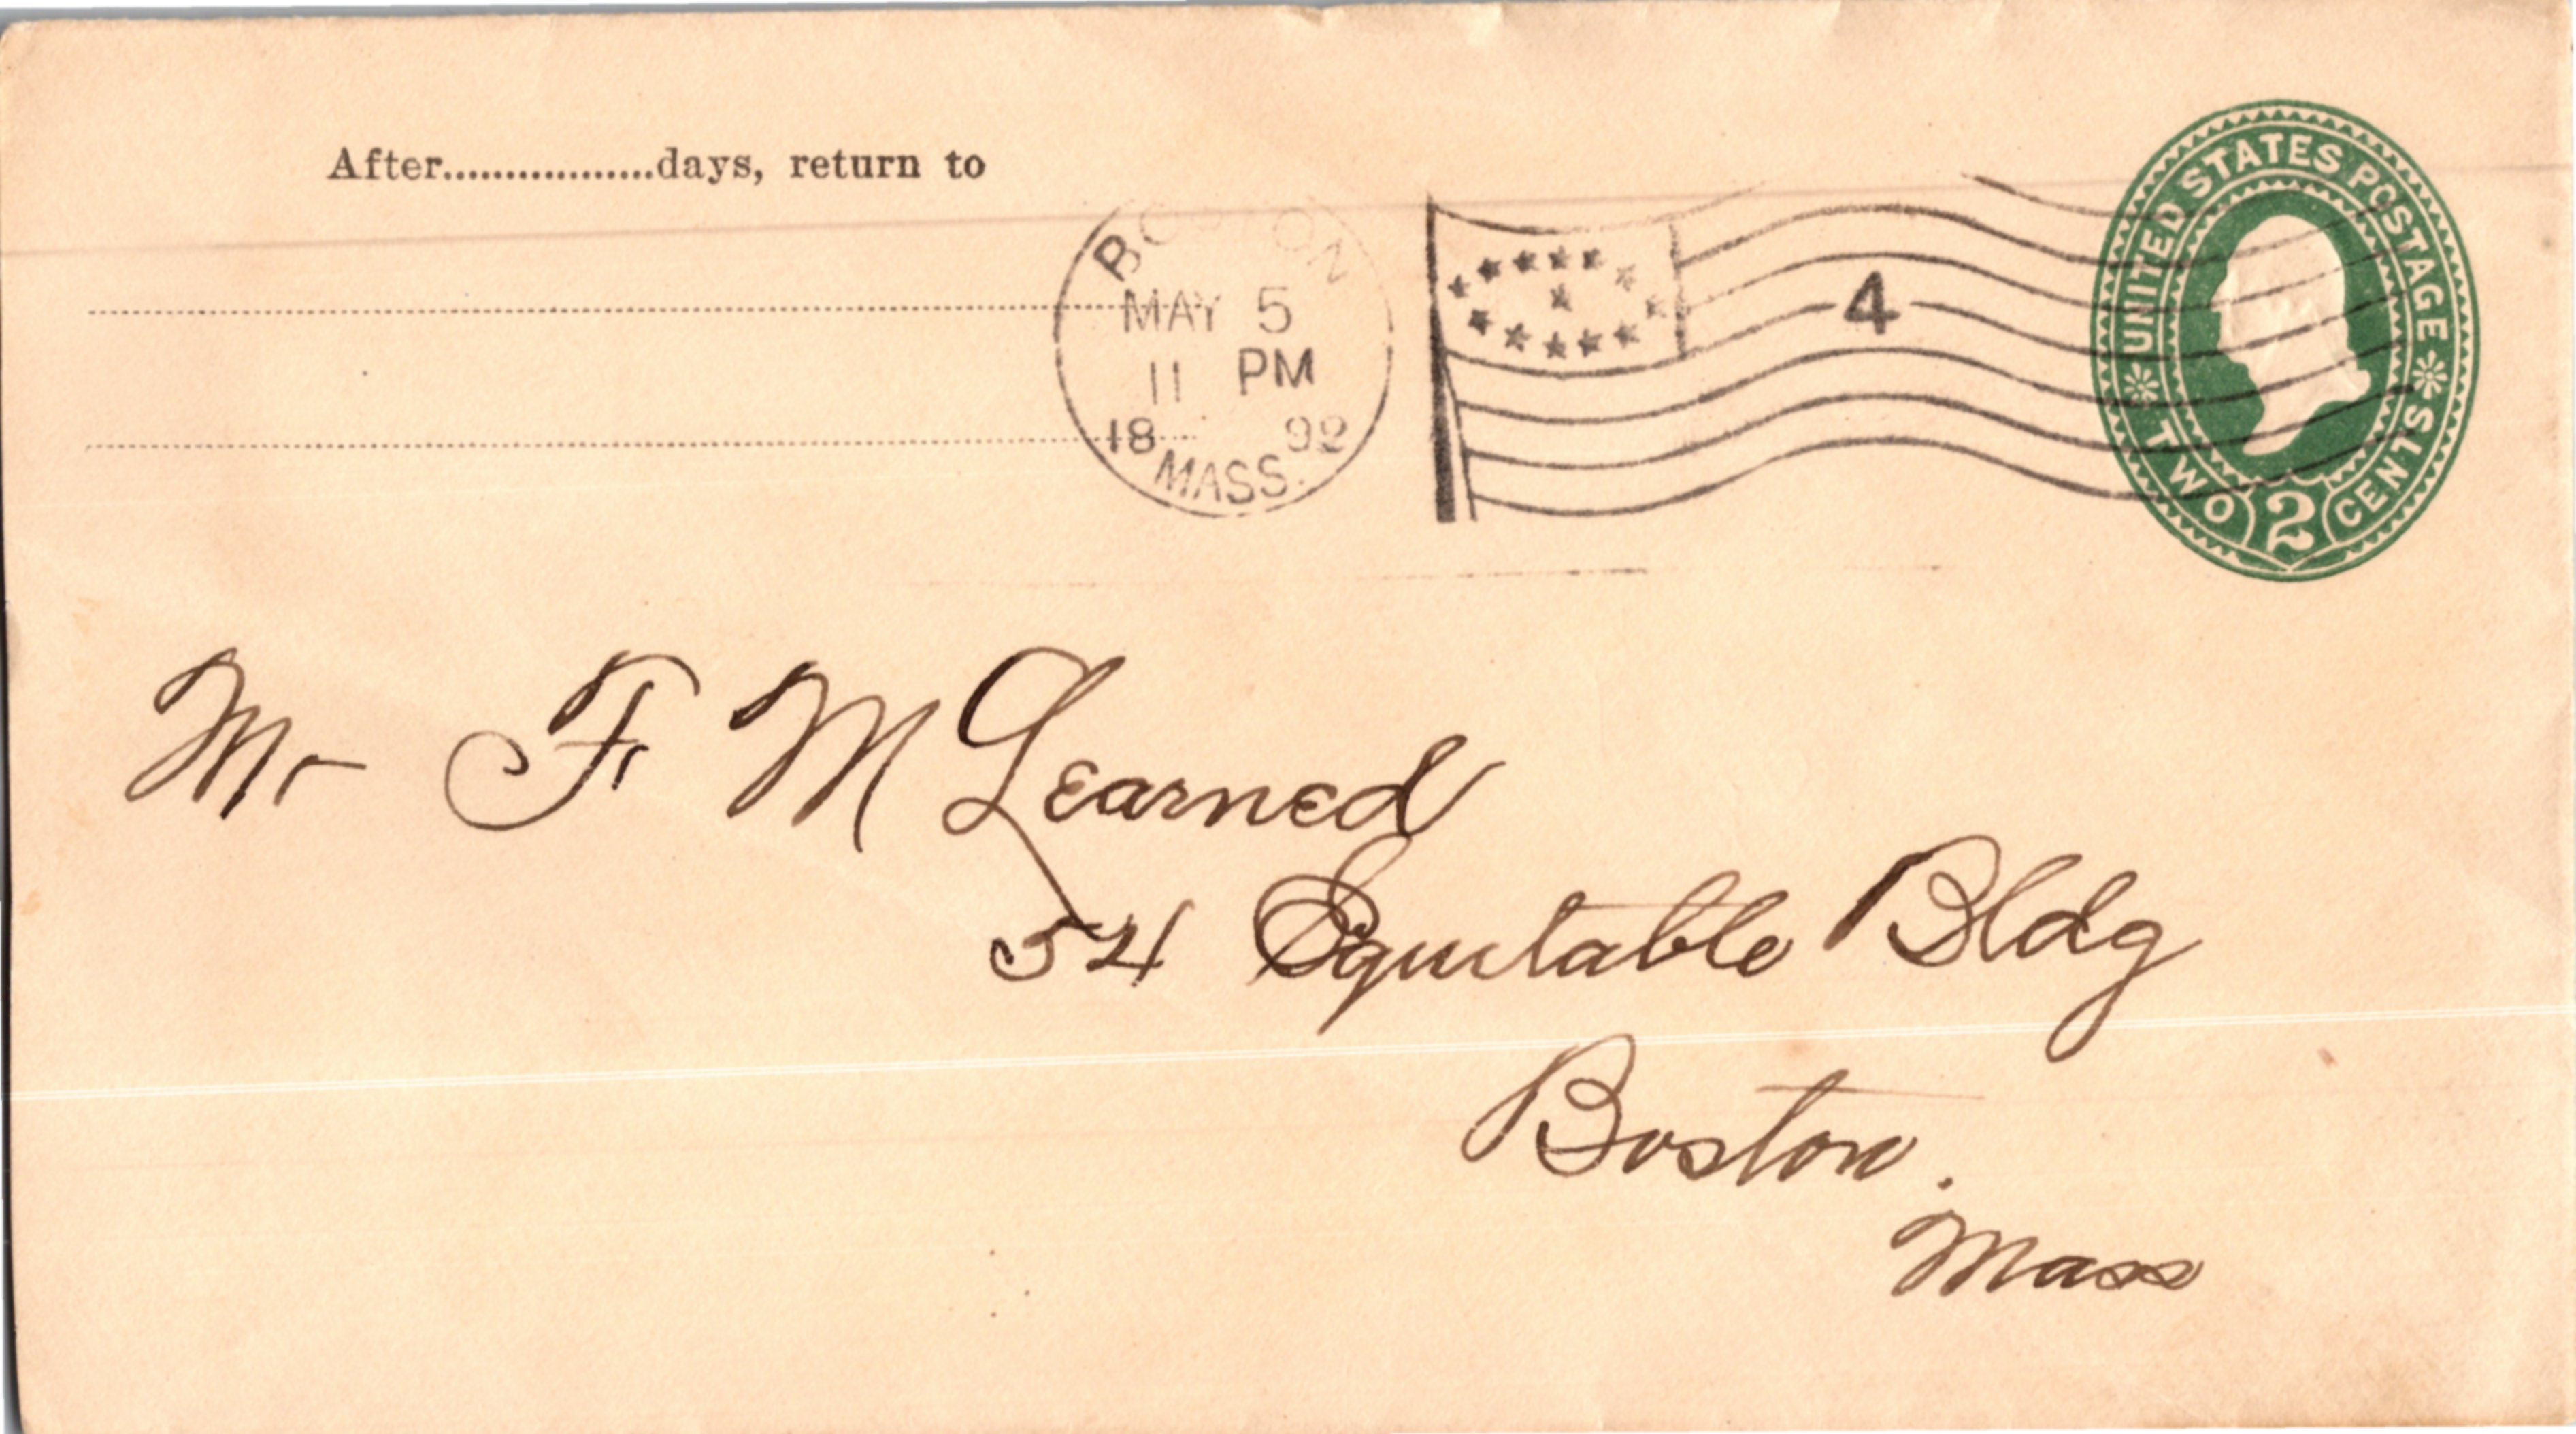 After..................days, return to
BOSTON
MAY 5
11 PM
18 92
MASS.
4
UNITED STATES POSTAGE
TWO 2 CENTS
Mr F M Learned
54 Equitable Bldg
Boston.
Mass